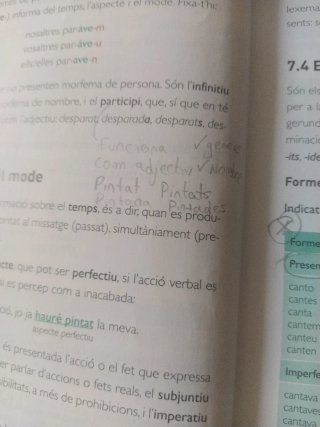 informa del temps, l'aspecte i el mode. Fixa-t'hi:
nosaltres par·àve·m
vosaltres par·àve·u
ells/elles par·ave·n
no presenten morfema de persona. Són l'infinitiu
de nombre, i el participi, que, sí que en té
com l'adjectiu: desparat, desparada, desparats, des-
Funciona ✓ gènere
Com adjectiu ✓ Nombre
Pintat Pintats
Pintada Pintades
l mode
sobre el temps, és a dir, quan es produ-
al missatge (passat), simultàniament (pre-
que pot ser perfectiu, si l'acció verbal es
si es percep com a inacabada:
jo ja hauré pintat la meva.
aspecte perfectiu
és presentada l'acció o el fet que expressa
per parlar d'accions o fets reals, el subjuntiu
a més de prohibicions, i l'imperatiu
lexema
sents: s
7.4 E
Són els
per a l
gerund
minaci
-its, -ide
Forme
Indicat
Forme
Presen
canto
cantes
canta
cantem
canteu
canten
Imperfe
cantava
cantaves
cantava